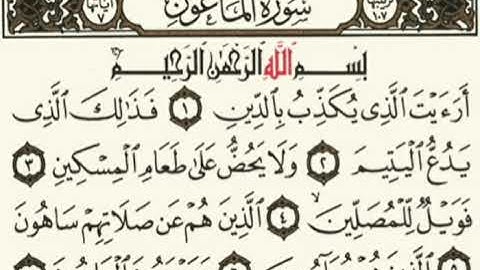 ترتيبها ١٠٧ سورة الماعون آياتها ٧
بسم الله الرحمن الرحيم
أَرَءَيْتَ الَّذِي يُكَذِّبُ بِالدِّينِ ١ فَذَٰلِكَ الَّذِي
يَدُعُّ الْيَتِيمَ ٢ وَلَا يَحُضُّ عَلَىٰ طَعَامِ الْمِسْكِينِ ٣
فَوَيْلٌ لِّلْمُصَلِّينَ ٤ الَّذِينَ هُمْ عَن صَلَاتِهِمْ سَاهُونَ